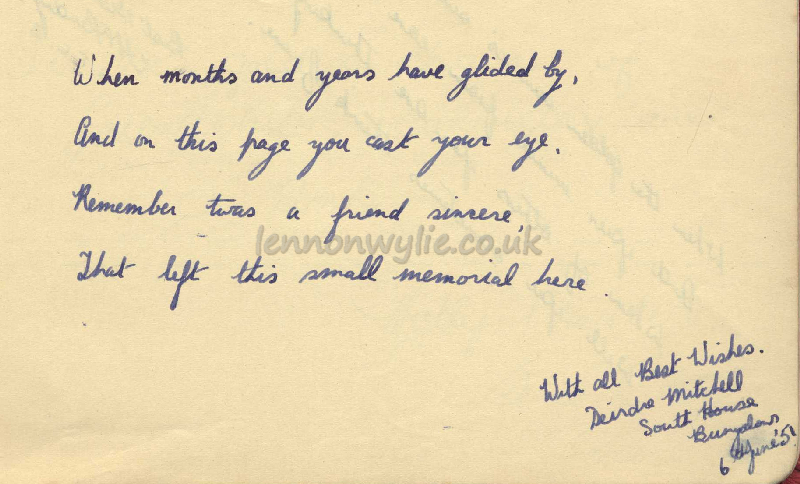 When months and years have glided by,
And on this page you cast your eye,
Remember twas a friend sincere,
That left this small memorial here.
lennonwylie.co.uk
With all Best Wishes.
Deirdre Mitchell
South House
Bungalow
6th June '51